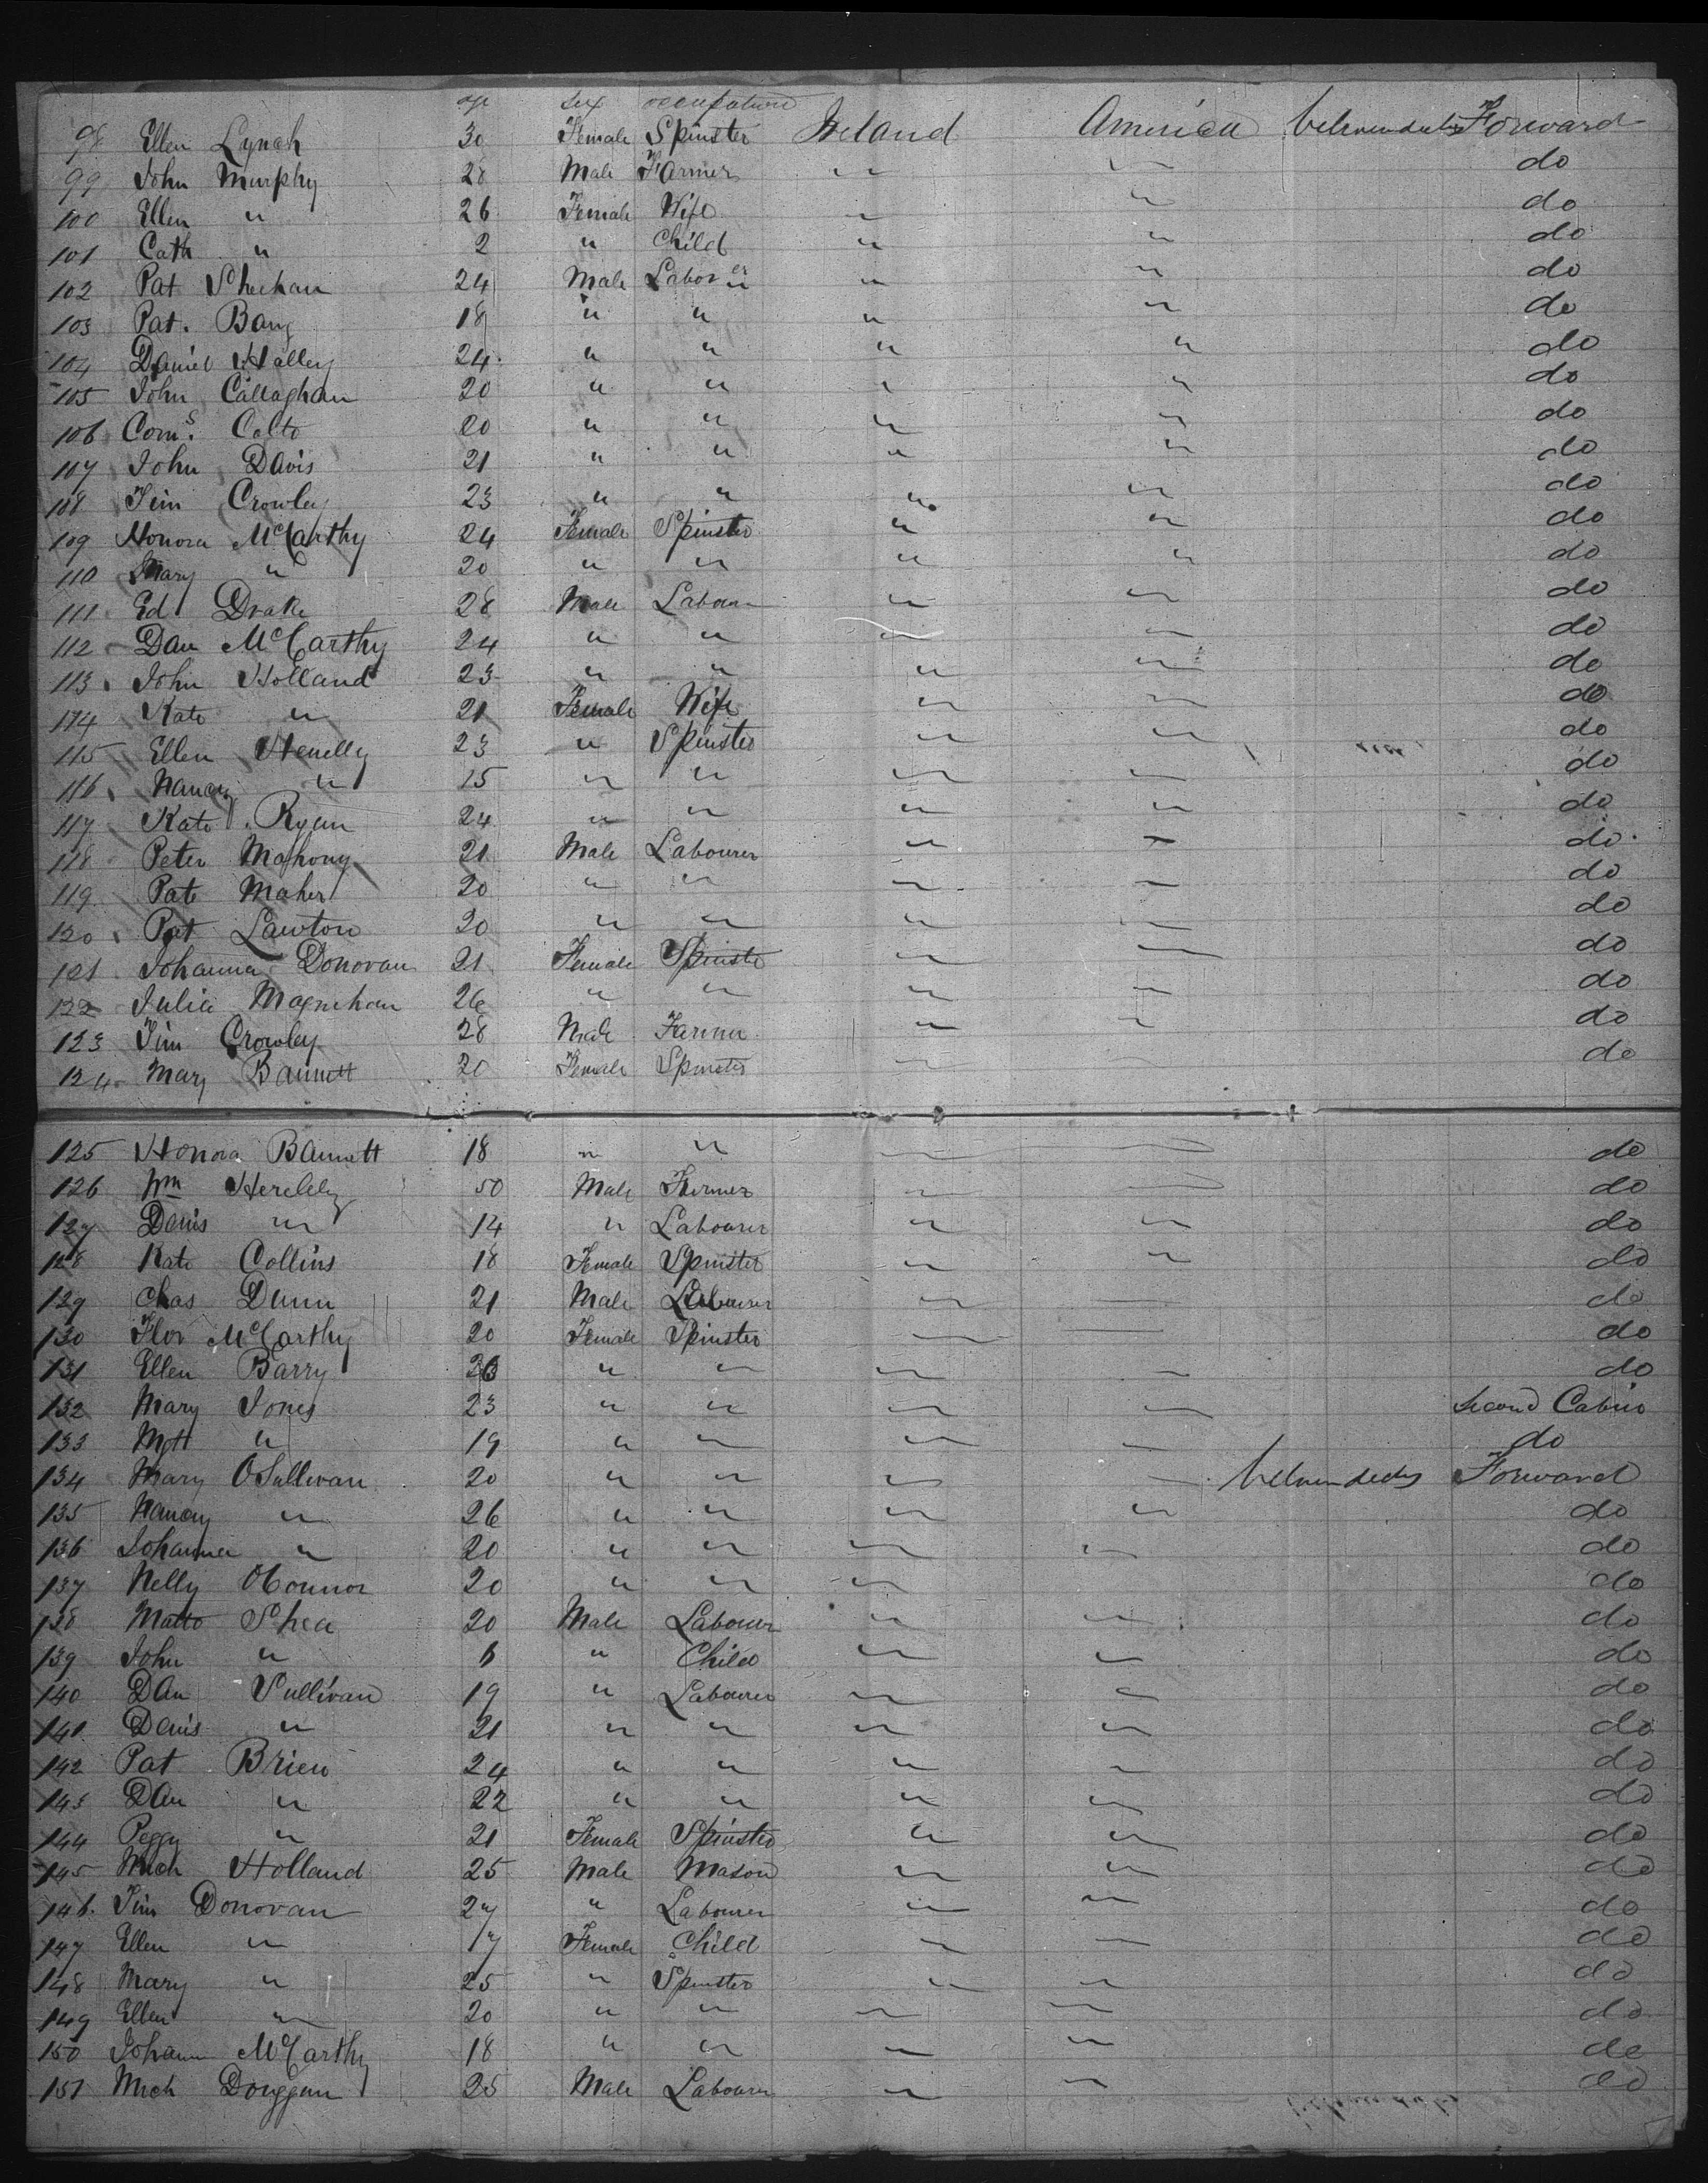 age sex occupation
98 Ellen Lynch 30 Female Spinster Ireland America between decks Forward
99 John Murphy 28 Male Farmer " " do
100 Ellen " 26 Female Wife " " do
101 Cath " 2 " Child " " do
102 Pat Sheehan 24 Male Laborer " " do
103 Pat. Barry 18 " " " " do
104 Daniel Halley 24 " " " " do
105 John Callaghan 20 " " " " do
106 Corns. Colto 20 " " " " do
107 John Davis 21 " " " " do
108 Tim Crowley 23 " " " " do
109 Honora McCarthy 24 Female Spinster " " do
110 Mary " 20 " " " " do
111 Ed Drake 28 Male Labourer " " do
112 Dan McCarthy 24 " " " " do
113 John Holland 23 " " " " do
114 Kate " 21 Female Wife " " do
115 Ellen Henelly 23 " Spinster " " do
116 Nancy " 15 " " " " do
117 Kate Ryan 24 " " " " do
118 Peter Mahony 21 Male Labourer " " do
119 Pate Maher 20 " " " " do
120 Pat Lawton 20 " " " " do
121 Johanna Donovan 21 Female Spinster " " do
122 Julia Magnehan 26 " " " " do
123 Tim Crowley 28 Male Farmer " " do
124 Mary Bannett 20 Female Spinster " " do
125 Honora Bannett 18 " " " " do
126 Wm Herelehy 50 Male Farmer " " do
127 Denis " 14 " Labourer " " do
128 Kate Collins 18 Female Spinster " " do
129 Chas Dunn 21 Male Labourer " " do
130 Flor McCarthy 20 Female Spinster " " do
131 Ellen Barry " " " " do
132 Mary Jones 23 " " " " Second Cabin
133 Mgtt " 19 " " " " do
134 Mary OSullivan 20 " " " " between decks Forward
135 Nancy " 26 " " " " do
136 Johanna " 20 " " " " do
137 Nelly OConnor 20 " " " " do
138 Matto Shea 20 Male Labourer " " do
139 John " 6 " Child " " do
140 Dan Sullivan 19 " Labourer " " do
141 Denis " 21 " " " " do
142 Pat Brien 24 " " " " do
143 Dan " 22 " " " " do
144 Peggy " 21 Female Spinster " " do
145 Mich Holland 25 Male Mason " " do
146. Tim Donovan 27 " Labourer " " do
147 Ellen " 17 Female Child " " do
148 Mary " 25 " Spinster " " do
149 Ellen " 20 " " " " do
150 Johann McCarthy 18 " " " " do
151 Mich Donggan 25 Male Labourer " " do